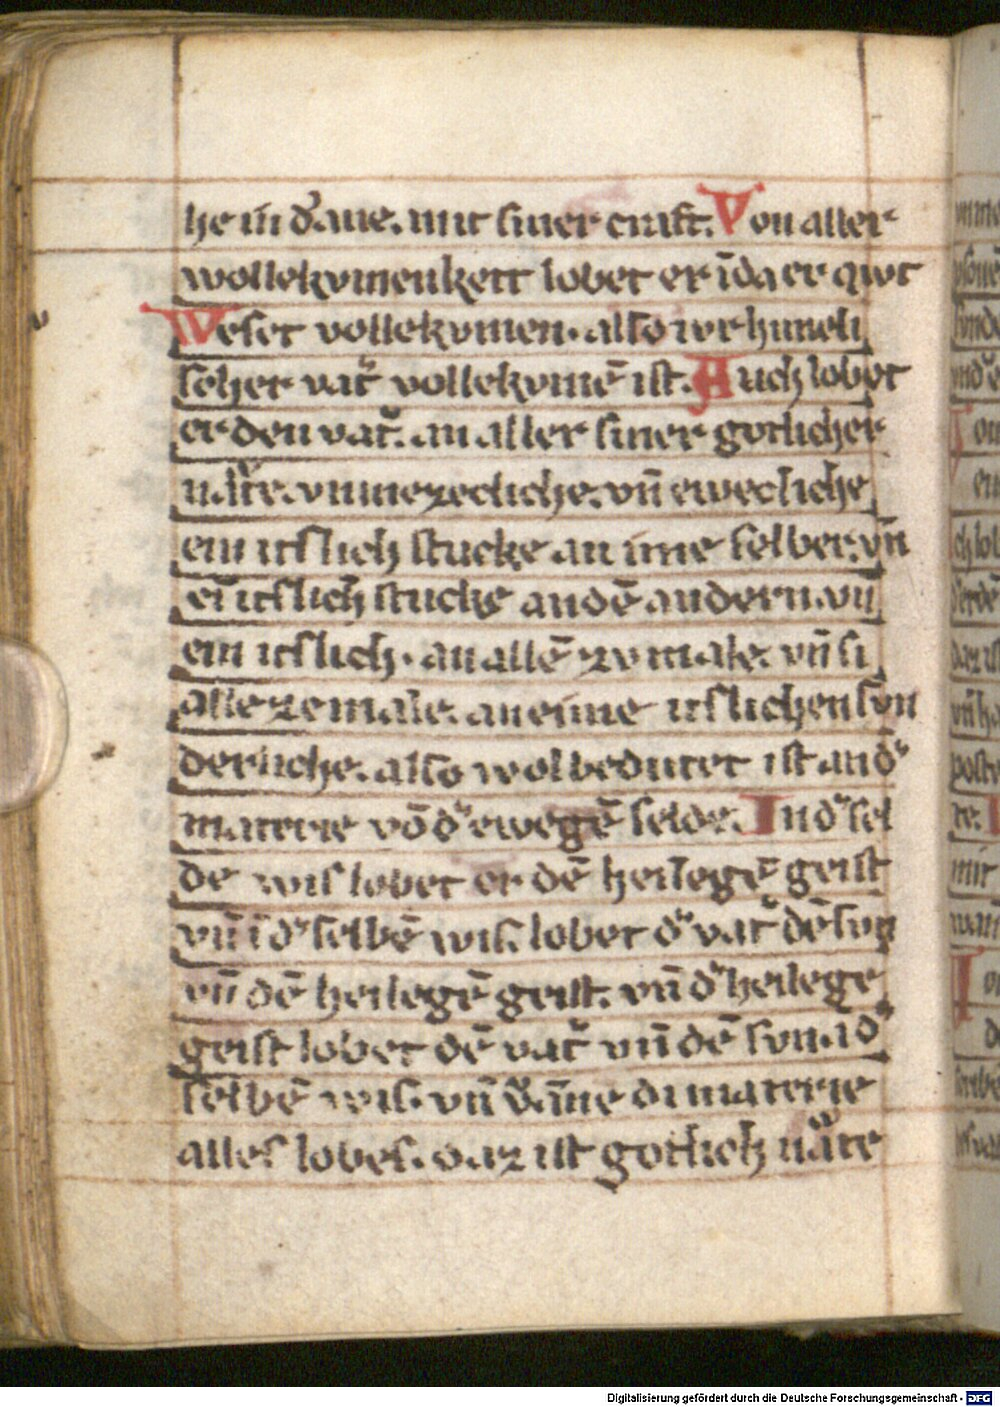 he in d̓ aue. mit siner craft. Von aller
vollekvmenkeit lobet er in̄ da er qwt
Weset vollekvmen. also ivr himeli
scher vat̓ vollekvmē ist. Auch lobet
er den vat̓. an aller siner gotlicher
natv̓re. vnmezecliche. vn̄ eweclicheˌ
ein itslich stucke an ime selber. vn̄
ein̄ itslich stucke an dē andern. vn̄
ein itslich. an allē zv male. vn̄ si
alle ze male. an eime itslichen svn
derliche. also wol bedutet ist an d̓
materie vō d̓ ewegē selde. In d̓ sel
de wis lobet er dē heilegē geist
vn̄ ī d̓ selbē wis. lobet d̓ vat̓ dē svn
vn̄ dē heilegē geist. vn̄ d̓ heilege
geist lobet dē vat̓ vn̄ dē svn. ī d̓
selbē wis. vn̄ di materie
alles lobes. daz ist gotlich natv̓re
Digitalisierung gefördert durch die Deutsche Forschungsgemeinschaft - DFG